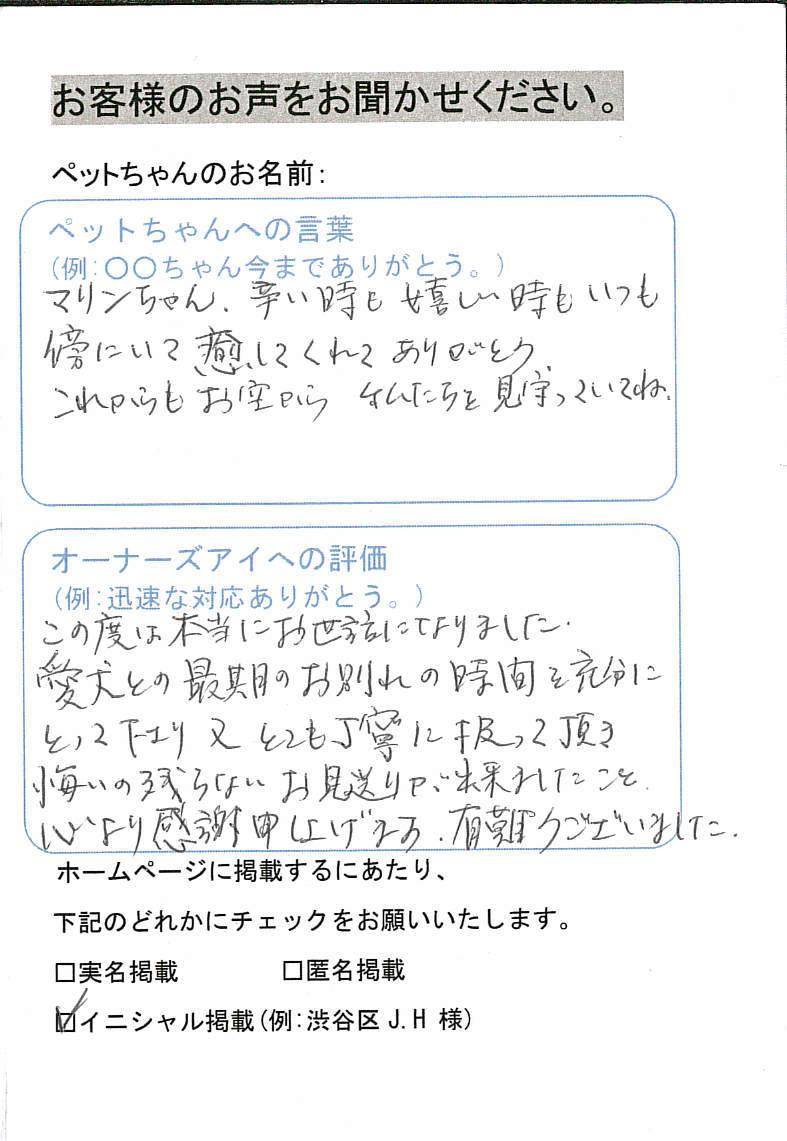 お客様のお声をお聞かせください。
ペットちゃんのお名前:
ペットちゃんへの言葉
(例:〇〇ちゃん今までありがとう。)
マリンちゃん、辛い時も嬉しい時もいつも
傍にいて癒してくれてありがとう、
これからもお空から 私たちを見守っていてね。
オーナーズアイへの評価
(例:迅速な対応ありがとう。)
この度は本当にお世話になりました。
愛犬との最期のお別れの時間を充分に
とって下さり又とても丁寧に扱って頂き
悔いの残らないお見送りが出来ましたこと、
心より感謝申し上げます。有難うございました。
ホームページに掲載するにあたり、
下記のどれかにチェックをお願いいたします。
□実名掲載 □匿名掲載
☑イニシャル掲載(例:渋谷区 J.H 様)